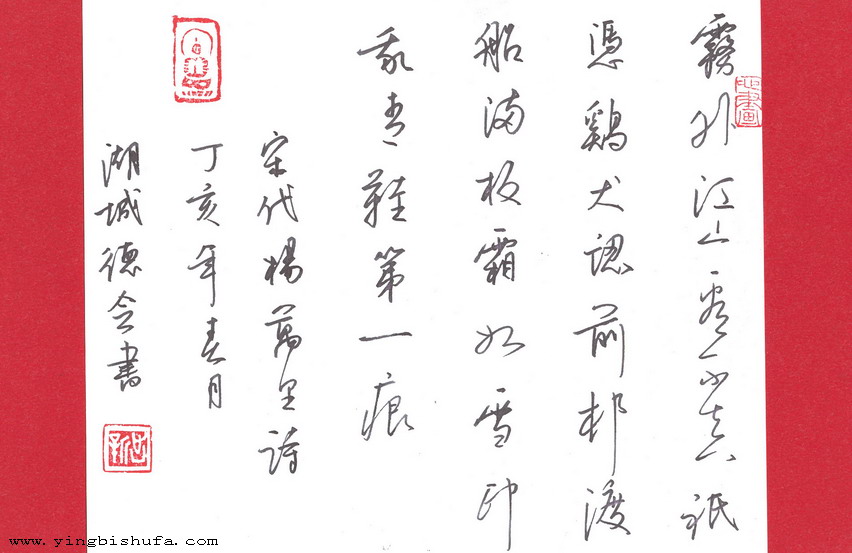 霧外江山看不真祇
憑鷄犬認前邨渡
船滿板霜如雪印
我青鞋第一痕
宋代楊萬里詩
丁亥年春月
湖城德書
心畫
www.yingbishufa.com